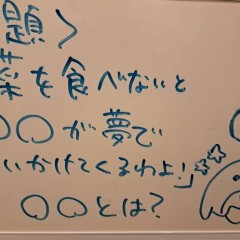 題〉
菜を食べないと
〇〇が夢で
いかけてくるわよ!」
〇〇とは?